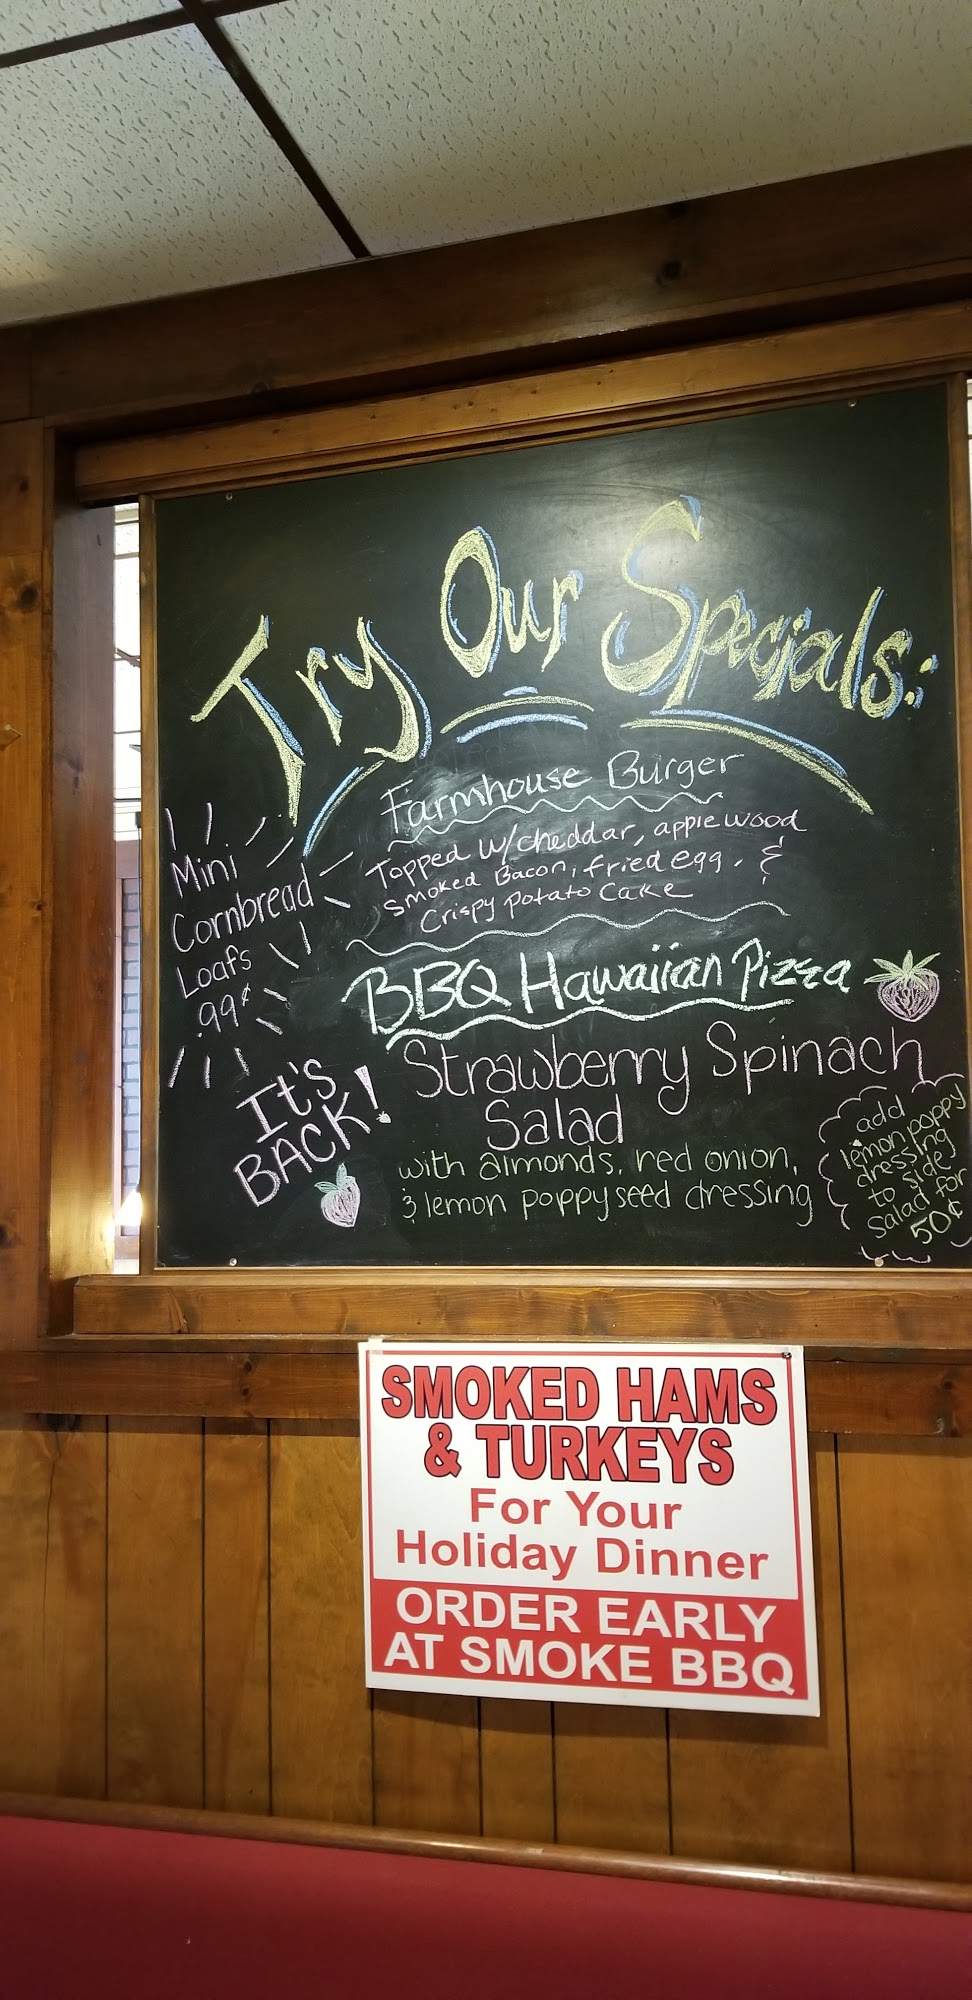 Try Our Specials:
Farmhouse Burger
Topped w/cheddar, applewood
smoked Bacon, fried egg, &
Crispy Potato Cake
Mini
Cornbread
Loafs
.99¢
BBQ Hawaiian Pizza
It's
BACK!
Strawberry Spinach
Salad
with almonds, red onion,
& lemon poppyseed dressing
add
lemon poppy
dressing
to side
salad for
50¢
SMOKED HAMS
& TURKEYS
For Your
Holiday Dinner
ORDER EARLY
AT SMOKE BBQ